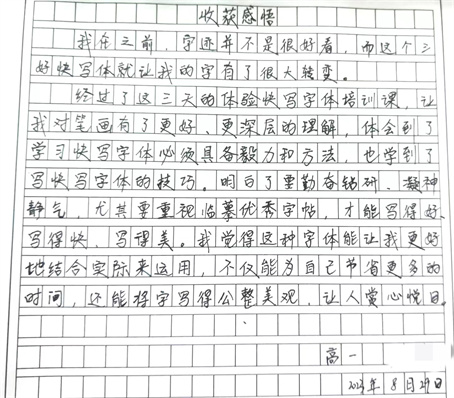 收获感悟
我在之前，字迹并不是很好看，而这个三
好快写体就让我的字有了很大转变。
经过了这三天的体验快写字体培训课，让
我对笔画有了更好、更深层的理解，体会到了
学习快写字体必须具备毅力和方法，也学到了
写快写字体的技巧。明白了要勤奋钻研、凝神
静气，尤其要重视临摹优秀字帖，才能写得好、
写得快、写得美。我觉得这种字体能让我更好
地结合实际来运用，不仅能为自己节省更多的
时间，还能将字写得公整美观，让人赏心悦目。
高一
年8月29日